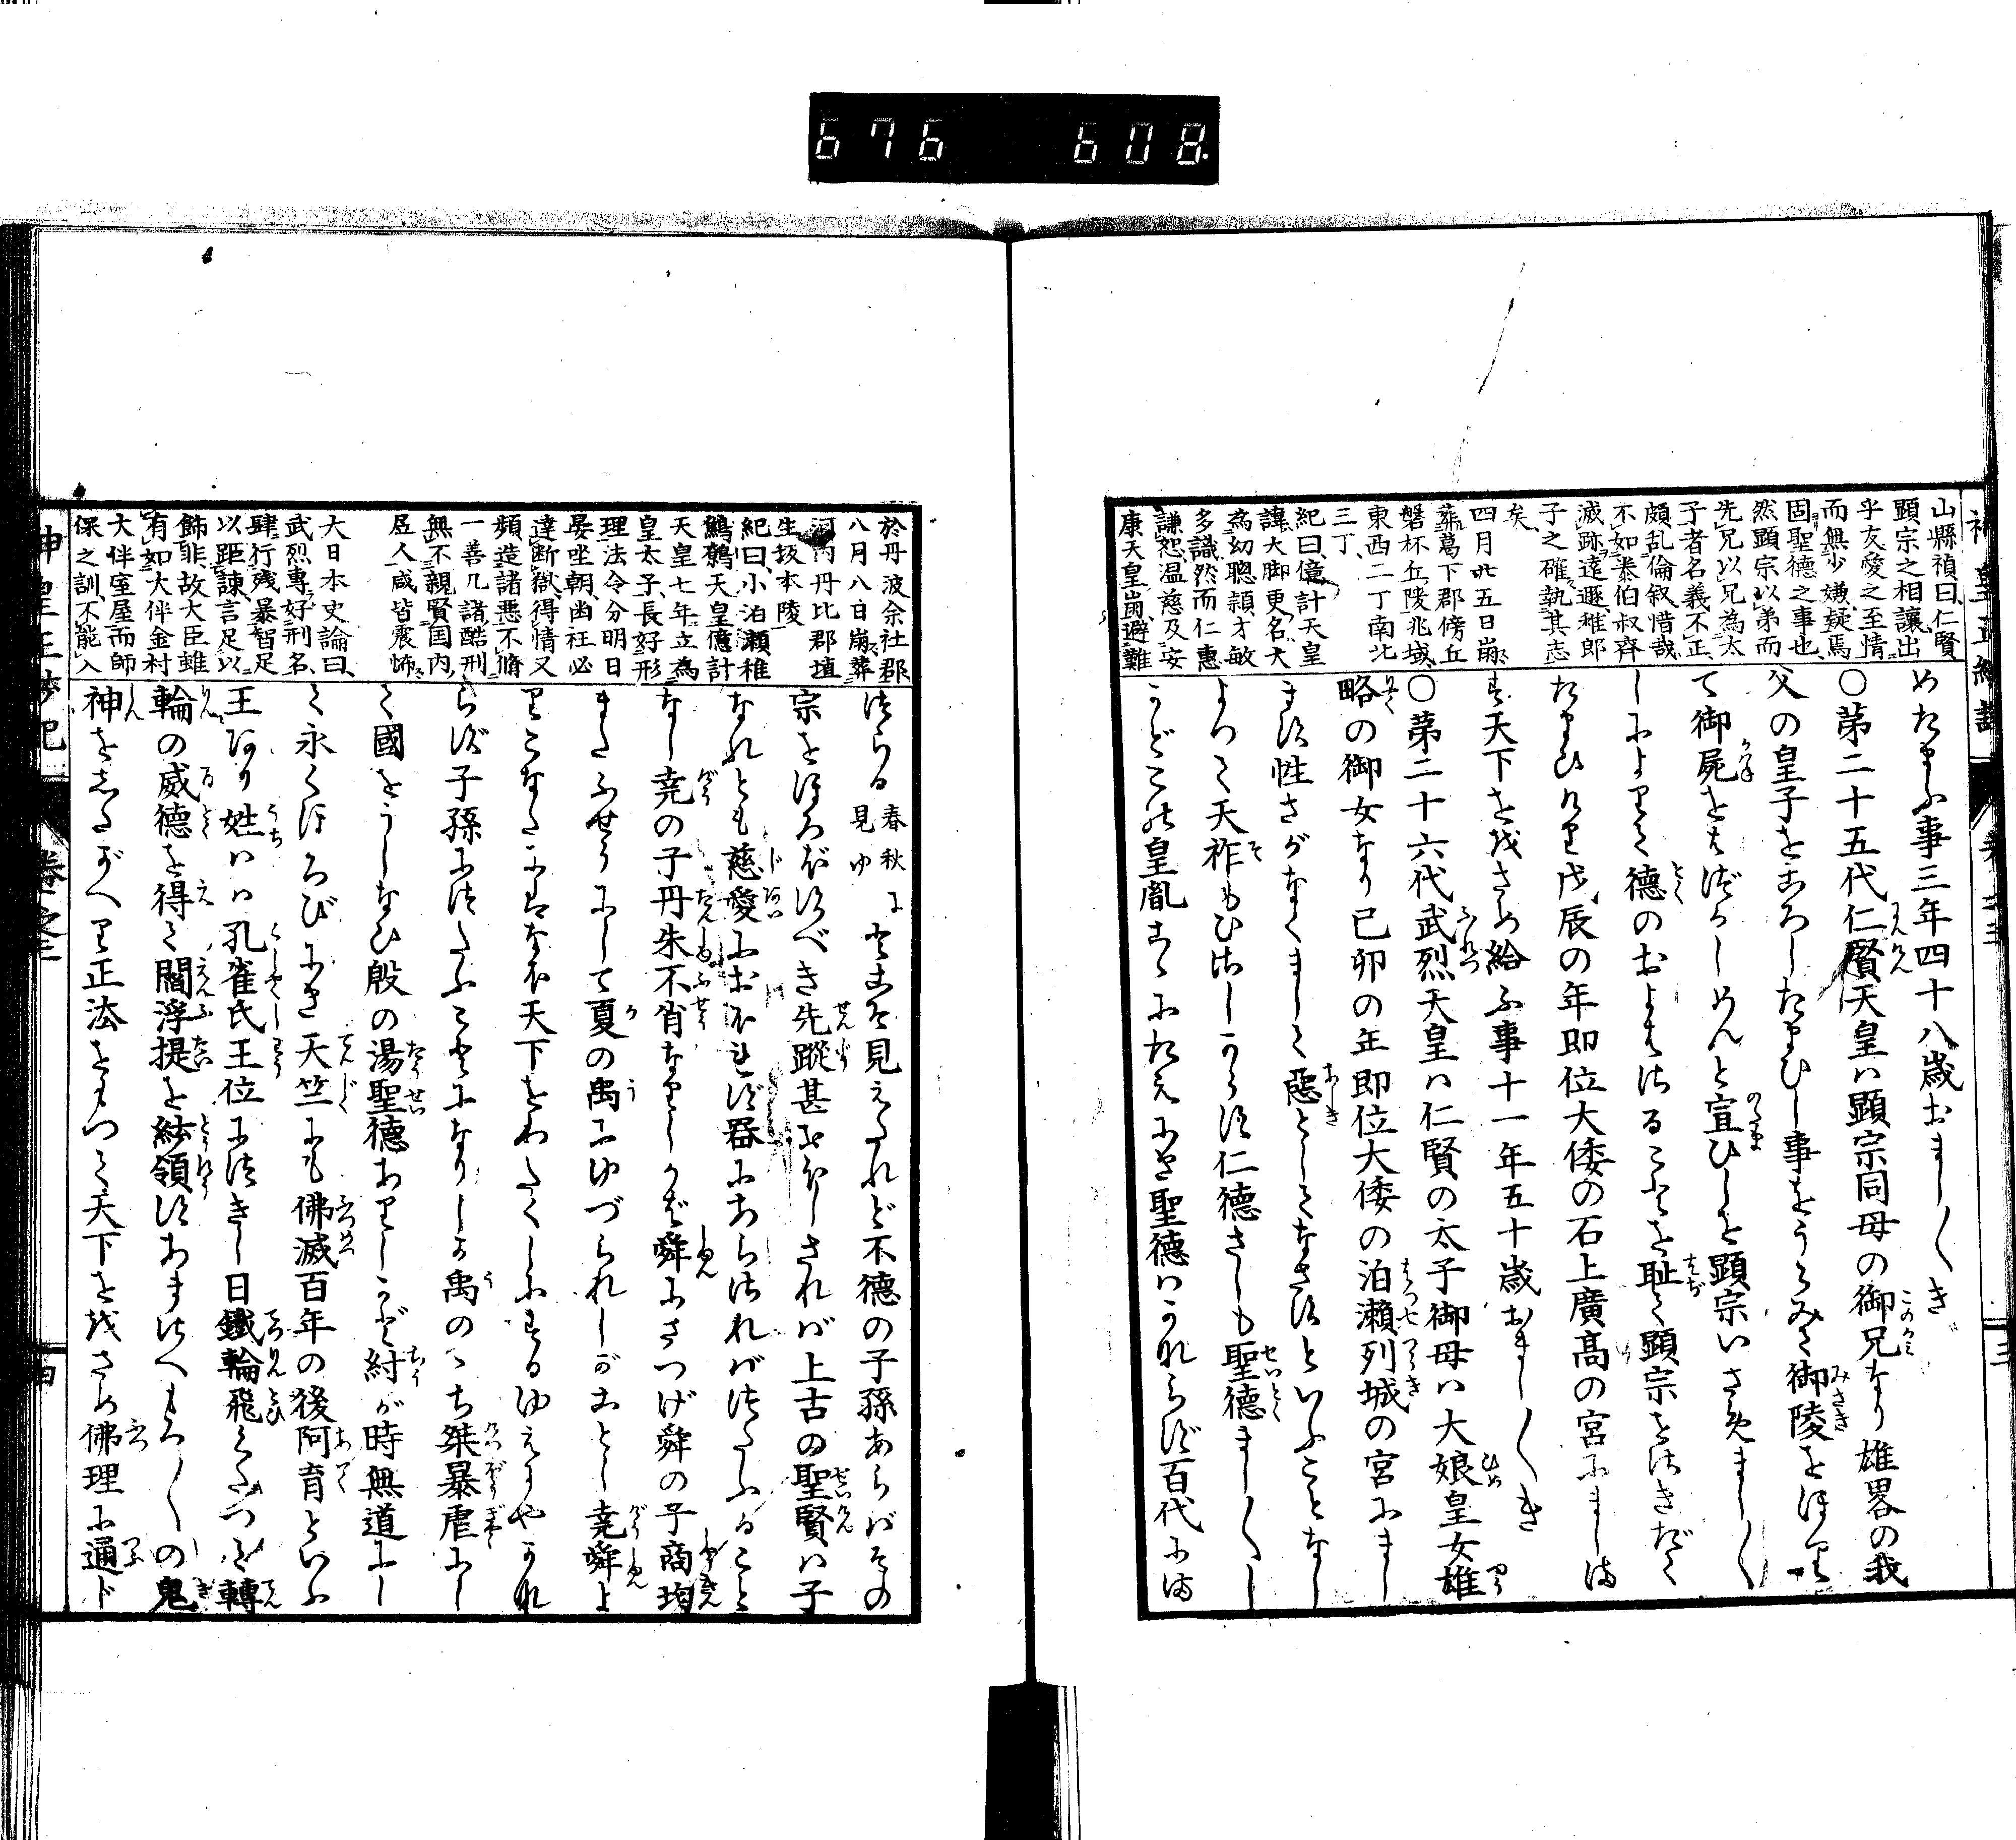 676 608.
山縣禎曰仁賢
顕宗之相讓出
乎友愛之至情
而無少嫌疑焉
固聖徳之事也
然顕宗以弟而
先兄以兄為太
子者名義不正
頗乱倫叙惜哉
不如泰伯叔齊
滅跡遠遯稚郎
子之確執其志
矣
四月廿五日崩
葬葛下郡傍丘
磐杯丘陵兆域
東西二丁南北
三丁
紀曰億計天皇
諱大脚更名大
為幼聰頴才敏
多識然而仁惠
謙恕温慈及安
康天皇崩避難
めたまふ事三年四十八歳おまし〱き
〇第二十五代仁賢天皇ハ顕宗同母の御兄なり雄畧の我
父の皇子をころしたまひし事をうらみて御陵をほり
て御屍をはづかしめんと宣ひしを顕宗いさめまし〱
しによりて徳のおよばざることを耻て顕宗をさきだて
たまひけり戊辰の年即位大倭の石上廣髙の宮にましま
す天下を治さめ給ふ事十一年五十歳おまし〱き
〇第二十六代武烈天皇ハ仁賢の太子御母ハ大娘皇女雄
略の御女なり已卯の年即位大倭の泊瀬列城の宮にまし
ます性さがなくまして惡としてなさずといふことなし
よつて天祚もひさしからず仁徳さしも聖徳まし〱し
かどこの皇胤こゝにたえにき聖徳ハかならず百代にま
於丹波余社郡
八月八日崩葬
河内丹比郡埴
生坂本陵
紀曰小泊瀬稚
鷦鷯天皇億計
天皇七年立為
皇太子長好形
理法令分明日
晏坐朝幽枉必
達断獄得情又
頻造諸悪不脩
一善凡諸酷刑
無不親覽国内
居人咸皆震怖
大日本史論曰
武烈專好刑名
肆行残暴智足
以距諫言足以
飾非故大臣雖
有如大伴金村
大伴室屋而師
保之訓不能入
つらる春秋見ゆにとこそ見えたれど不徳の子孫あらバその
宗をほろぼすべき先蹤甚おほしされバ上古の聖賢ハ子
なれとも慈愛におぼれず器にあらざれバつたふること
なし尭の子丹朱不肖なりしかバ舜にさつげ舜の子商均
またふせうにして夏の禹にゆづられしがごとし尭舜よ
りこなたにはなほ天下をわたくしにするゆえにやかな
らず子孫につたふことになりしに禹のゝち桀暴虐にし
て國をうしなひ殷の湯聖徳ありしかど紂が時無道にし
て永くほろびにき天竺にも佛滅百年の後阿育といふ
王あり姓ハ孔雀氏王位につきし日鐵輪飛くだつて轉
輪の威徳を得て閻浮提を統領すあまさへもろ〱の鬼
神をしたがへり正法をもつて天下を治さめ佛理に通ド